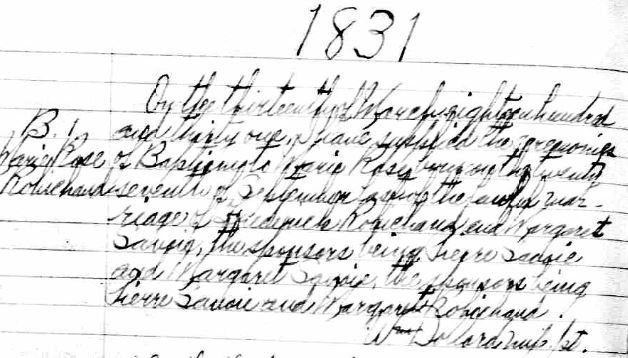 1831
On the thirteenth of March eighteen hundred
B. 1. and thirty one, I have supplied the ceremonies
Marie Rose of Baptism to Marie Rose born on the twenty
Robichaud seventh of September of the lawful mar-
riage of Frederick Robichaud and Margaret
Savoie, the sponsors being Pierre Savoie
and Margaret Savoie, the sponsors being
Pierre Savoie and Margaret Robichaud.
Wm Dollard Miss. pst.